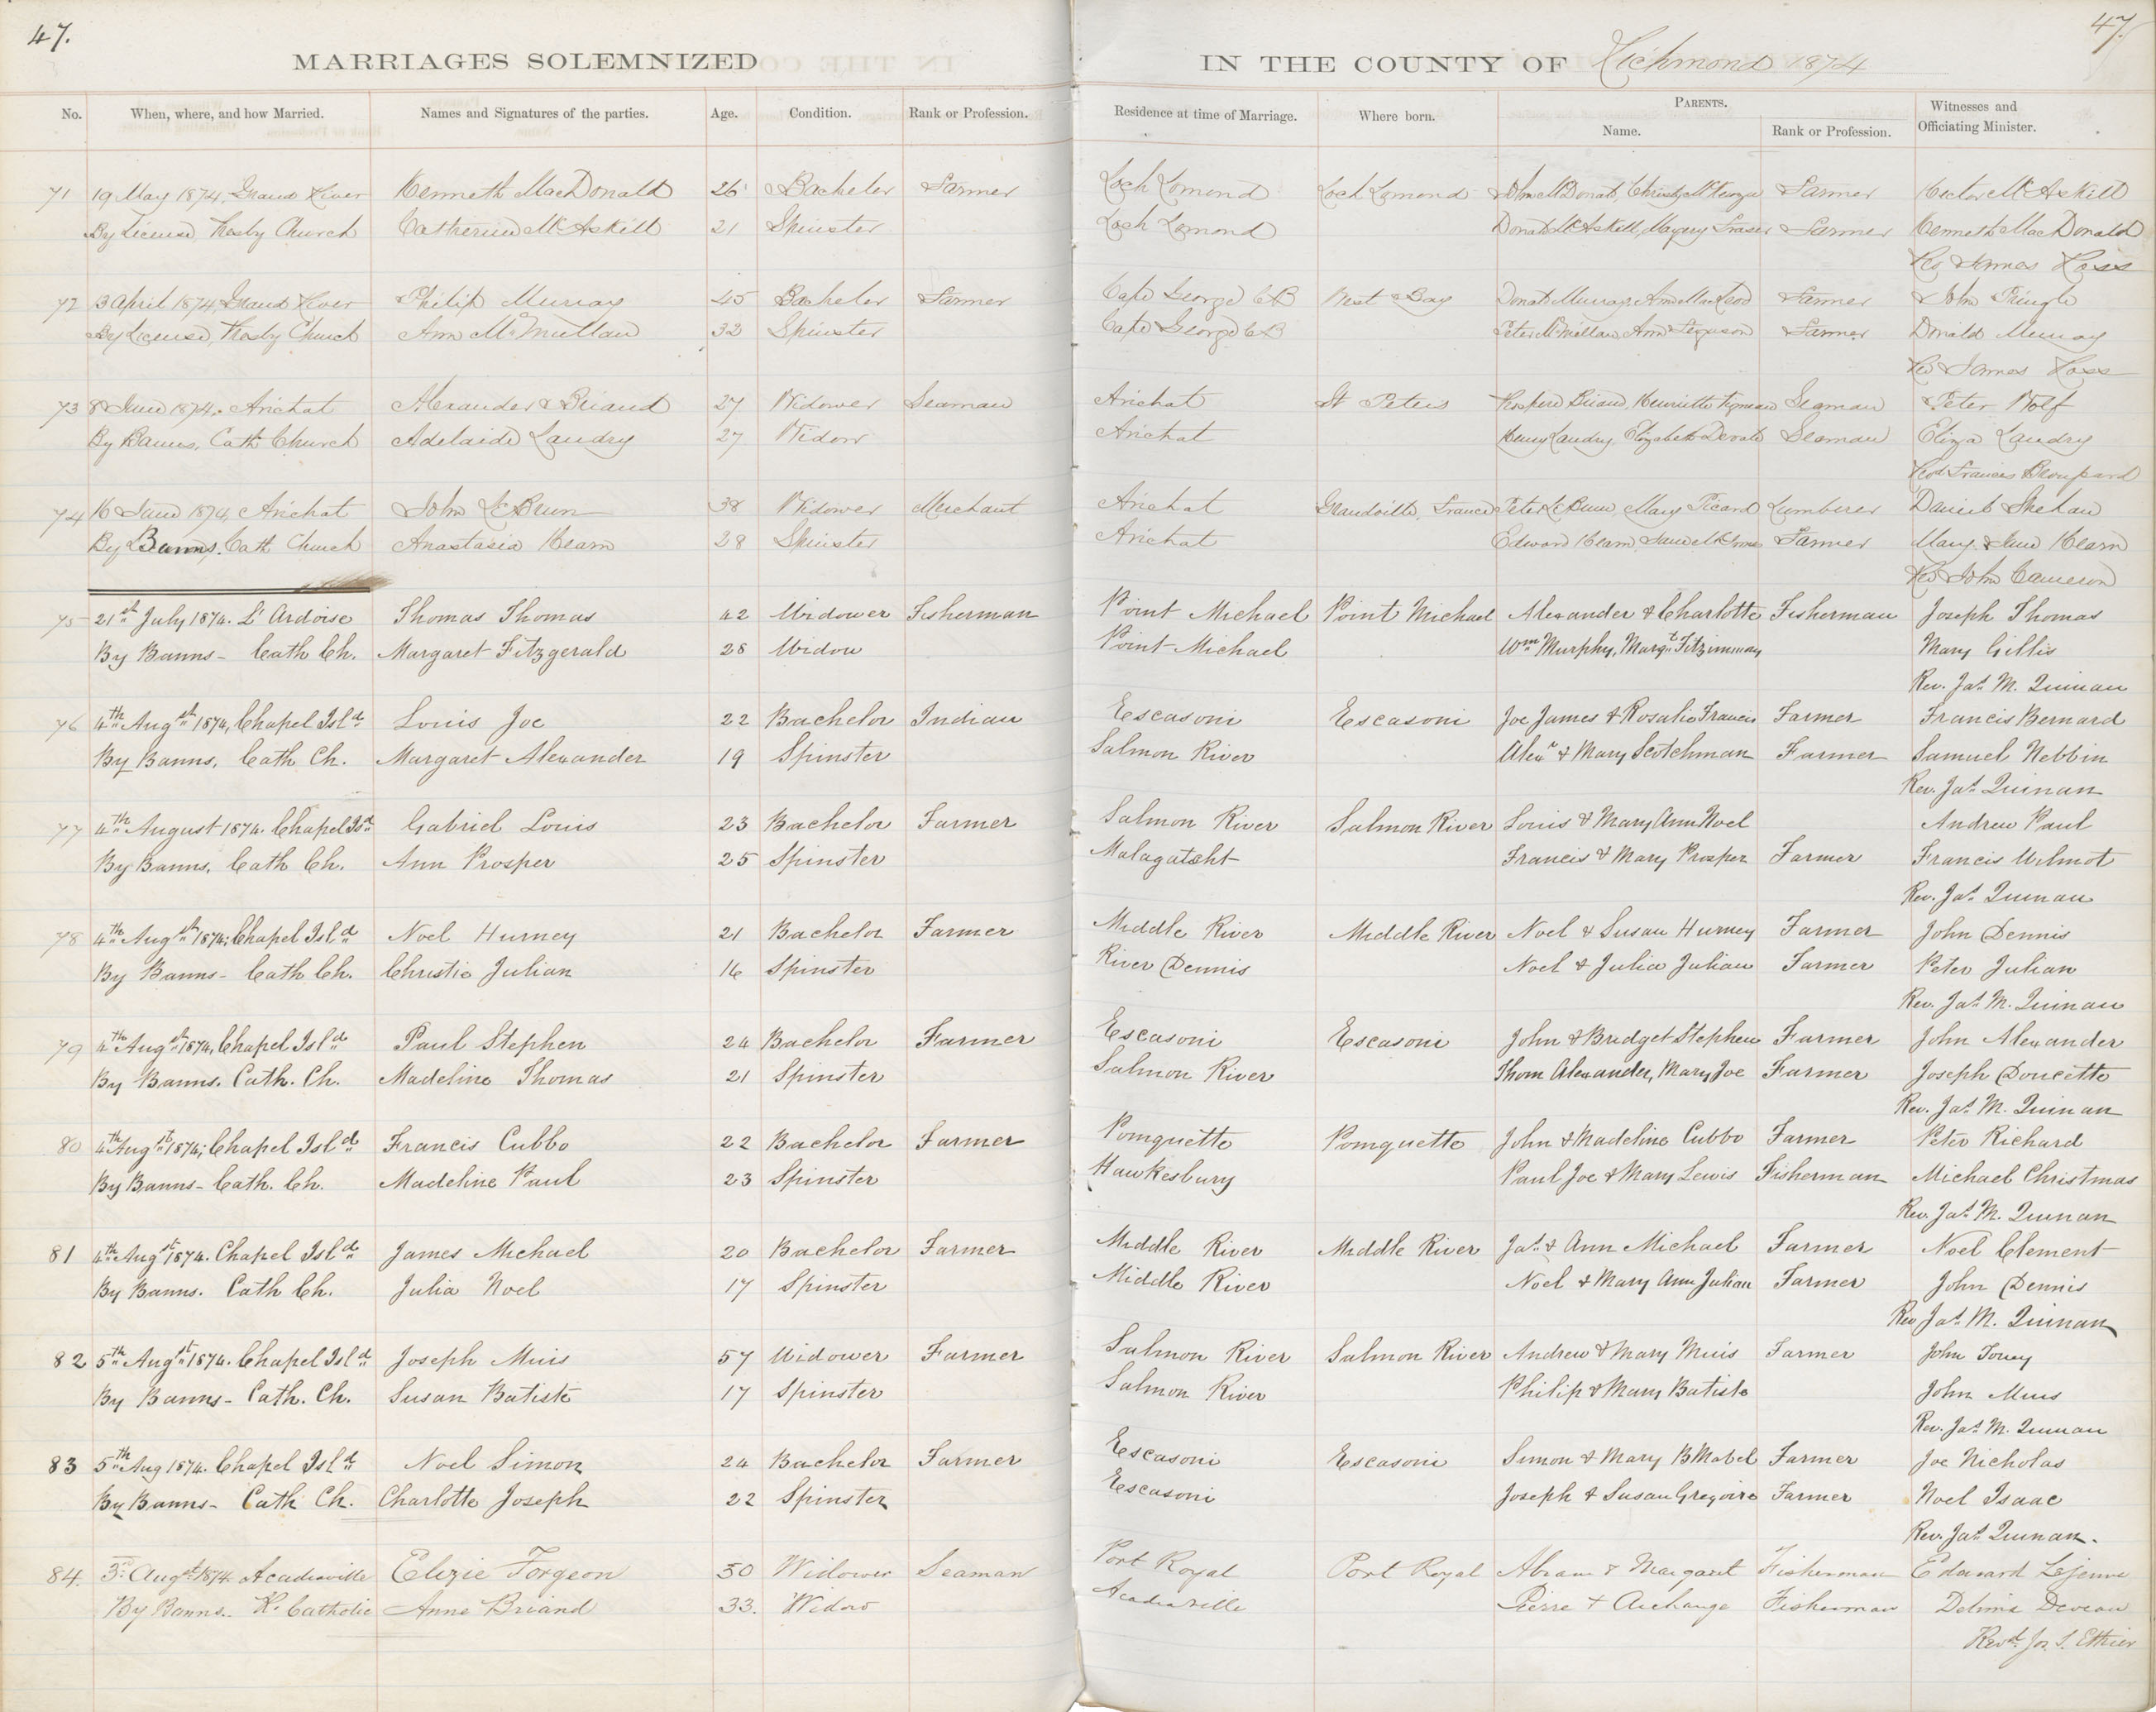 47.
47.
MARRIAGES SOLEMNIZED IN THE COUNTY OF Richmond 1874
No. When, where, and how Married. Names and Signatures of the parties. Age. Condition. Rank or Profession. Residence at time of Marriage. Where born. PARENTS. Name. Rank or Profession. Witnesses and Officiating Minister.
71 19 May 1874, Grand River Kenneth MacDonald 26 Bachelor Farmer Loch Lomond Loch Lomond John McDonald, Christy McKenzie Farmer Hector McAskill
By License, Presby Church Catherine McAskill 21 Spinster Loch Lomond Donald McAskill, Fraser Farmer Kenneth MacDonald
Rev James Ross
72 13 April 1874, Grand River Philip Murray 45 Bachelor Farmer Cape George CB West Bay Donald Murray, Ann MacLeod Farmer John Pringle
By License, Presby Church Ann McMullan 32 Spinster Cape George CB Peter McMillan, Ann Ferguson Farmer Donald Murray
Rev James Ross
73 8 June 1874, Arichat Alexander Briand 27 Widower Seaman Arichat St Peters Briand, Henriette Seaman Peter Wolf
By Banns, Cath Church Adelaide Landry 27 Widow Arichat Henry Landry, Elizabeth Seaman Eliza Landry
Revd Francis
74 16 June 1874, Arichat John LeBrun 38 Widower Merchant Arichat Grandville, France Peter LeBrun, Mary Picard Lumberer Daniel Shehan
By Banns, Cath Church Anastasia Hearn 28 Spinster Arichat Edward Hearn, Farmer Mary Jane Hearn
Rev John Cameron
75 21st July 1874. L'Ardoise Thomas Thomas 42 Widower Fisherman Point Michael Point Michael Alexander & Charlotte Fisherman Joseph Thomas
By Banns - Cath Ch. Margaret Fitzgerald 28 Widow Point Michael Wm Murphy, Margt Fitzimmons Mary Gillis
Rev. Jas M. Quinan
76 4th Augst 1874, Chapel Isld Louis Joe 22 Bachelor Indian Escasoni Escasoni Joe James & Rosalie Francis Farmer Francis Bernard
By Banns, Cath Ch. Margaret Alexander 19 Spinster Salmon River Alexr & Mary Scotchman Farmer Samuel Nebbin
Rev. Jas Quinan
77 4th August 1874. Chapel Isd Gabriel Louis 23 Bachelor Farmer Salmon River Salmon River Louis & Mary Ann Noel Andrew Paul
By Banns, Cath Ch. Ann Prosper 25 Spinster Malagatcht Francis & Mary Prosper Farmer Francis Wilmot
Rev. Jas Quinan
78 4th Augst 1874; Chapel Isld Noel Hurney 21 Bachelor Farmer Middle River Middle River Noel & Susan Hurney Farmer John Dennis
By Banns - Cath Ch. Christie Julian 16 Spinster River Dennis Noel & Julia Julian Farmer Peter Julian
Rev. Jas M. Quinan
79 4th Augst 1874, Chapel Isld Paul Stephen 24 Bachelor Farmer Escasoni Escasoni John & Bridget Stephen Farmer John Alexander
By Banns. Cath. Ch. Madeline Thomas 21 Spinster Salmon River Thom Alexander, Mary Joe Farmer Joseph Doucette
Rev. Jas M. Quinan
80 4th Augst 1874; Chapel Isld Francis Cubbo 22 Bachelor Farmer Pomquette Pomquette John & Madeline Cubbo Farmer Peter Richard
By Banns - Cath. Ch. Madeline Paul 23 Spinster Hawkesbury Paul Joe & Mary Lewis Fisherman Michael Christmas
Rev. Jas M. Quinan
81 4th Augst 1874. Chapel Isld James Michael 20 Bachelor Farmer Middle River Middle River Jas & Ann Michael Farmer Noel Clement
By Banns. Cath Ch. Julia Noel 17 Spinster Middle River Noel & Mary Ann Julian Farmer John Dennis
Rev Jas M. Quinan
82 5th Augst 1874. Chapel Isld Joseph Muis 57 Widower Farmer Salmon River Salmon River Andrew & Mary Muis Farmer John Toney
By Banns - Cath. Ch. Susan Batiste 17 Spinster Salmon River Philip & Mary Batiste John Muis
Rev. Jas M. Quinan
83 5th Aug 1874. Chapel Isld Noel Simon 24 Bachelor Farmer Escasoni Escasoni Simon & Mary B Mabel Farmer Joe Nicholas
By Banns - Cath Ch. Charlotte Joseph 22 Spinster Escasoni Joseph & Susan Gregoire Farmer Noel Isaac
Rev. Jas Quinan.
84. 3rd Augst 1874. Acadiaville Elezie Forgeon 50 Widower Seaman Port Royal Port Royal Abram & Margaret Fisherman Edward Lejeune
By Banns. R. Catholic Anne Briand 33. Widow Acadiaville Pierre + Archange Fisherman Delima Deveau
Revd. Jos. S. Ethier